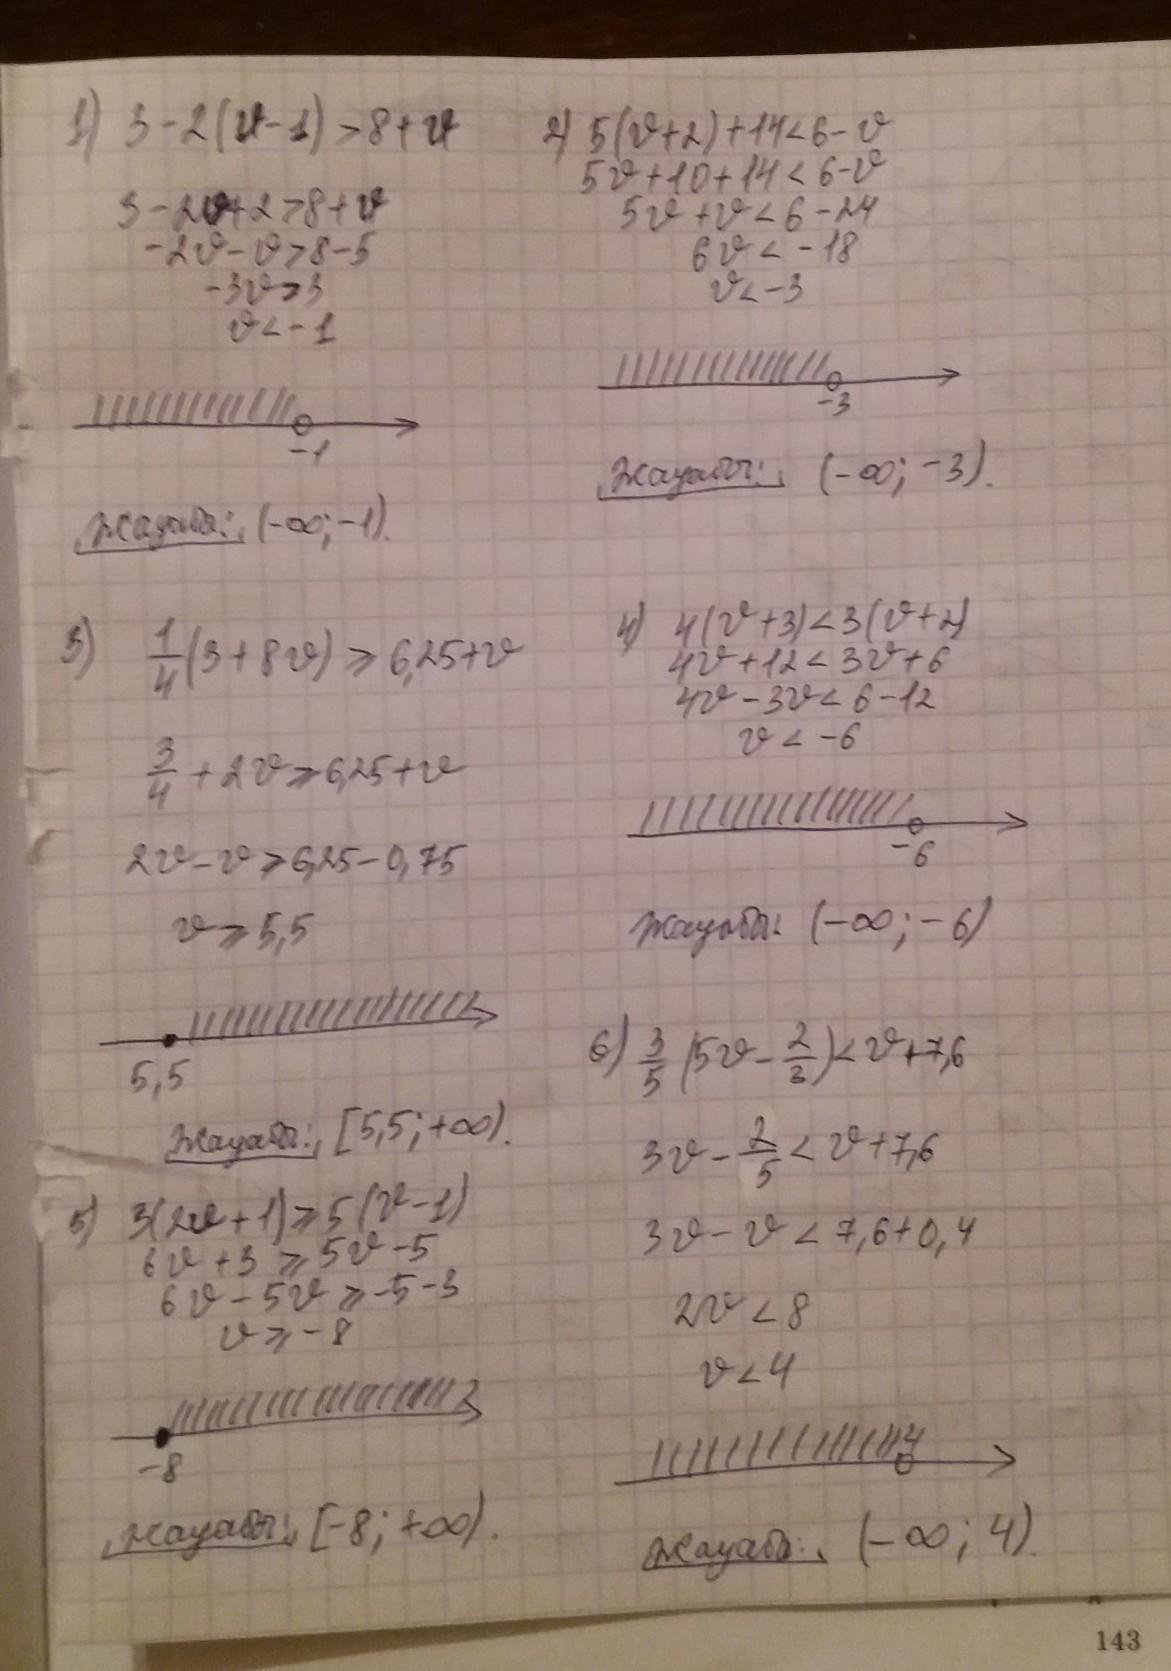 1) 3-2(v-1)>8+v
3-2v+2>8+v
-2v-v>8-5
-3v>3
v<-1
-1
Жауабы: (-∞;-1).
2) 5(v+2)+14<6-v
5v+10+14<6-v
5v+v<6-24
6v<-18
v<-3
-3
Жауабы: (-∞;-3).
3) 1/4(3+8v)⩾6,25+v
3/4+2v⩾6,25+v
2v-v⩾6,25-0,75
v⩾5,5
5,5
Жауабы: [5,5;+∞).
4) 4(v+3)<3(v+2)
4v+12<3v+6
4v-3v<6-12
v<-6
-6
Жауабы: (-∞;-6)
5) 3(2v+1)⩾5(v-1)
6v+3⩾5v-5
6v-5v⩾-5-3
v⩾-8
-8
Жауабы: [-8;+∞).
6) 3/5(5v-2/3)<v+7,6
3v-2/5<v+7,6
3v-v<7,6+0,4
2v<8
v<4
4
Жауабы: (-∞;4).
143